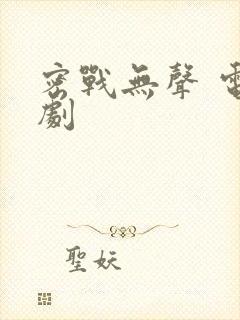 密戰無聲 電
劇
聖妖